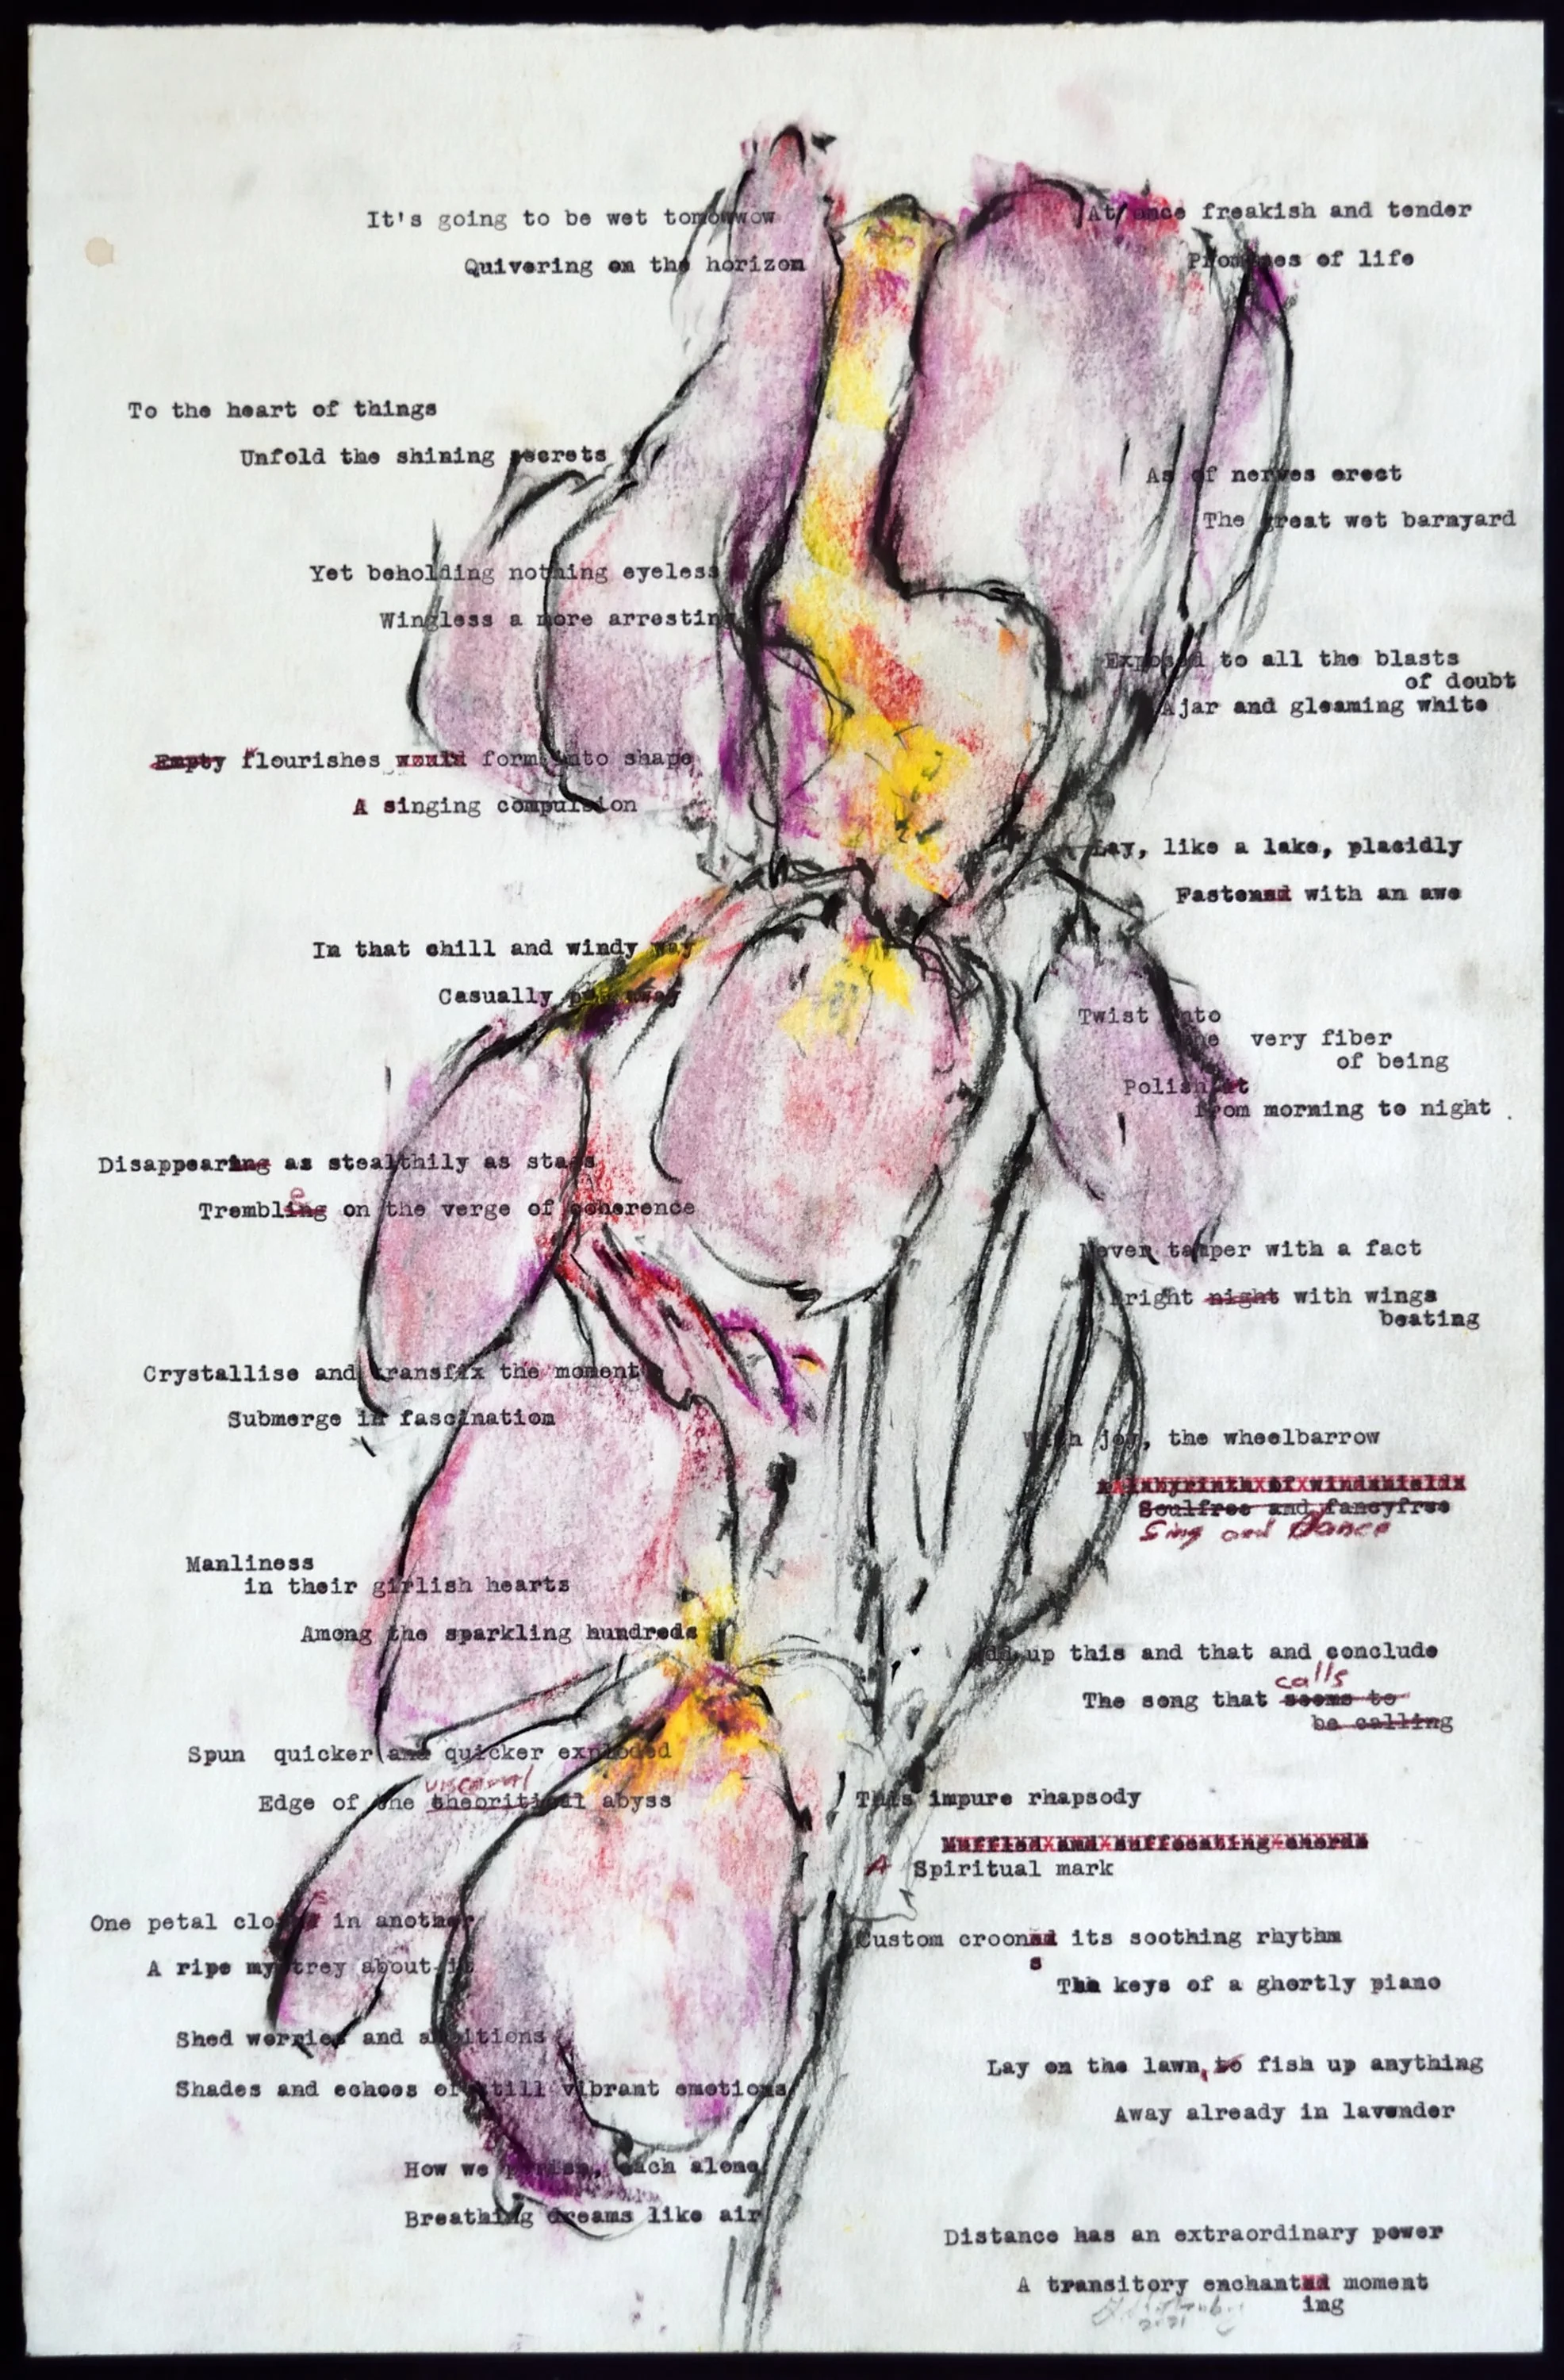 It's going to be wet tomowwow
Quivering on the horizon
To the heart of things
Unfold the shining secrets
Yet beholding nothing eyeless
Wingless a more arresting
Empty flourishes would form into shape
A singing compulsion
In that chill and windy way
Casually put away
Disappearing as stealthily as stags
Trembling on the verge of coherence
e
Crystallise and transfix the moment
Submerge in fascination
Manliness
in their girlish hearts
Among the sparkling hundreds
Spun quicker and quicker exploded
visceral
Edge of the theoritical abyss
One petal closed in another
A ripe mystrey about it
Shed worries and ambitions
Shades and echoes of still vibrant emotions
How we perish, each alone
Breathing dreams like air
At once freakish and tender
Promises of life
As of nerves erect
The great wet barnyard
Exposed to all the blasts
of doubt
Ajar and gleaming white
Lay, like a lake, placidly
Fastened with an awe
Twist into
the very fiber
of being
Polish it
from morning to night .
Never tamper with a fact
Bright night with wings
beating
With joy, the wheelbarrow
A labyrinth of windshields
Soulfree and fancyfree
Sing and Dance
Add up this and that and conclude
calls
The song that seems to
be calling
This impure rhapsody
Muffled and suffocating chords
A Spiritual mark
Custom crooned its soothing rhythm
s
The keys of a ghortly piano
Lay on the lawn, to fish up anything
Away already in lavender
Distance has an extraordinary power
A transitory enchanted moment
ing
2021